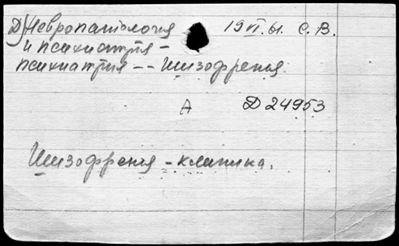 Д) Невропатология 19 VI. 61. С. В.
и психиатрия -
психиатрия -- Шизофрения.
А Д 24953
Шизофрения - клиника.